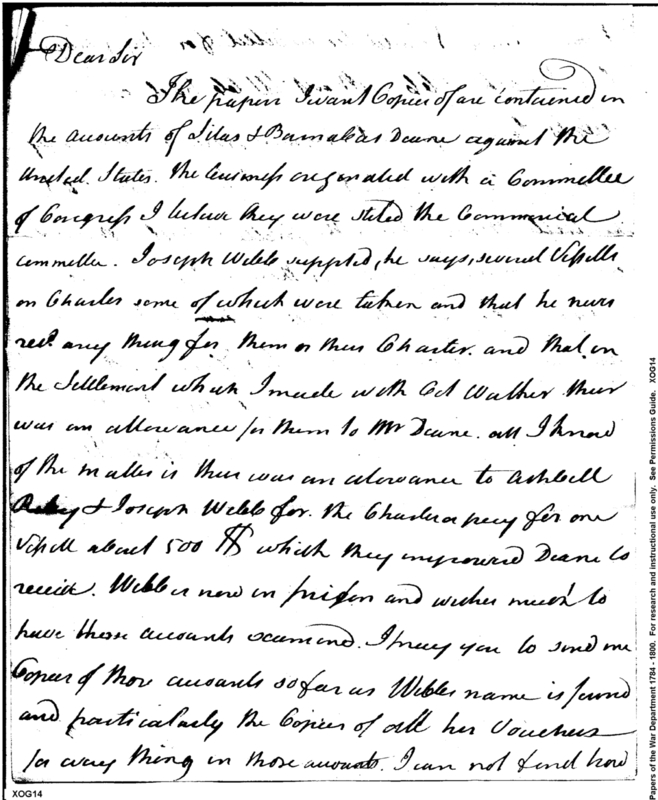 Dear Sir
The papers I want Copies of are contained in
the accounts of Silas & Barnabas Deane against the
United States. the business originated with a Committee
of Congress I believe they were stiled the Commercial
committee. Joseph Webb supplied, he says, several Vessells
on Charter some of which were taken and that he never
recd any thing for them or their Charter. and that in
the Settlement which I made with Col Walker there
was an allowance for them to Mr Deane. all I know
of the matter is there was an alowance to Ashbell
& Joseph Webb for the Charter a pay for one
Vessell about 500 which they impowered Deane to
receive. Webb is now in prison and wishes much to
have these accounts examined. I pray you to send me
Copies of those accounts so far as Webbs name is found
and particularly the Copies of all his Vouchers
for every thing in those accounts. I can not find how
XOG14
Papers of the War Department 1784 - 1800. For research and instructional use only. See Permissions Guide. XOG14